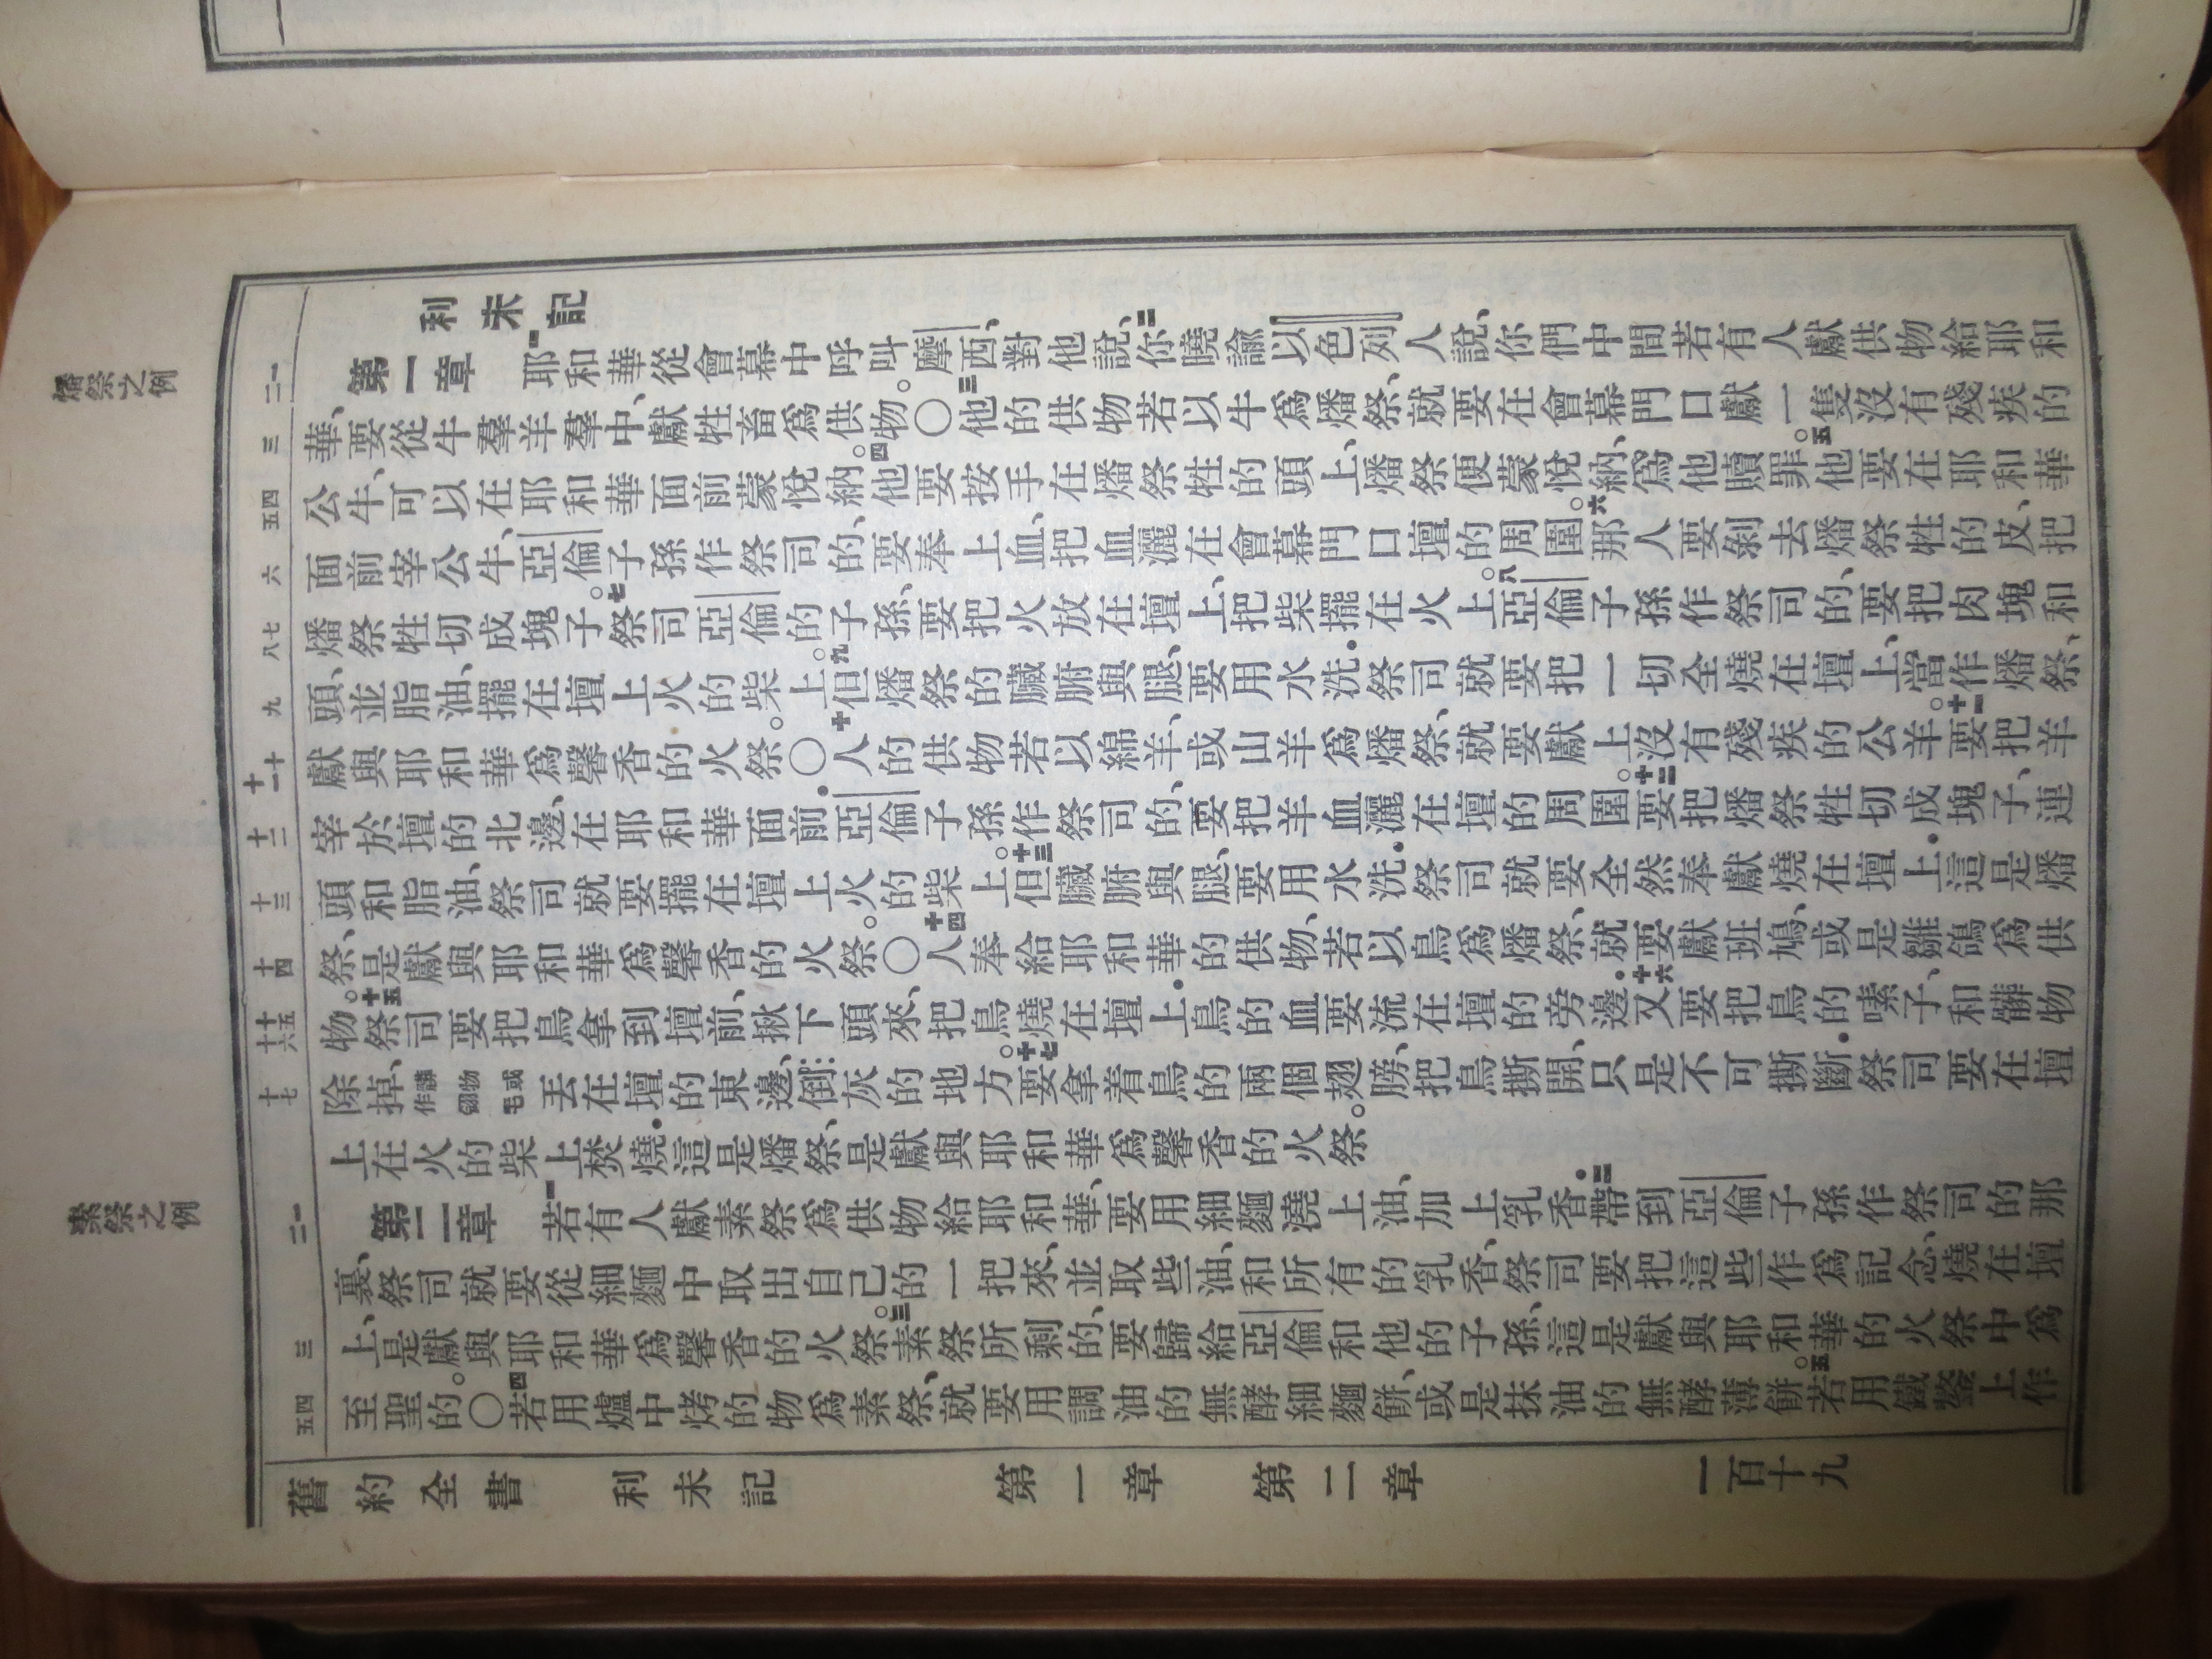 燔祭之例
素祭之例
利未記
一 二
三
四 五
六
七 八
九
十 十一
十二
十三
十四
十五 十六
十七
一 二
三
四 五
第一章 一耶和華從會幕中呼叫摩西、對他說、二你曉諭以色列人說、你們中間若有人獻供物給耶和
華、要從牛羣羊羣中、獻牲畜爲供物。〇三他的供物若以牛爲燔祭、就要在會幕門口獻一隻沒有殘疾的
公牛、可以在耶和華面前蒙悅納。四他要按手在燔祭牲的頭上、燔祭便蒙悅納、爲他贖罪。五他要在耶和華
面前宰公牛、亞倫子孫作祭司的、要奉上血、把血灑在會幕門口壇的周圍。六那人要剝去燔祭牲的皮、把
燔祭牲切成塊子。七祭司亞倫的子孫、要把火放在壇上、把柴擺在火上。八亞倫子孫作祭司的、要把肉塊和
頭、並脂油、擺在壇上火的柴上。九但燔祭的臟腑與腿、要用水洗．祭司就要把一切全燒在壇上、當作燔祭、
獻與耶和華爲馨香的火祭。〇十人的供物若以綿羊、或山羊爲燔祭、就要獻上沒有殘疾的公羊。十一要把羊
宰於壇的北邊、在耶和華面前．亞倫子孫作祭司的、要把羊血灑在壇的周圍。十二要把燔祭牲切成塊子、連
頭和脂油、祭司就要擺在壇上火的柴上。十三但臟腑與腿、要用水洗．祭司就要全然奉獻燒在壇上．這是燔
祭、是獻與耶和華爲馨香的火祭。〇十四人奉給耶和華的供物、若以鳥爲燔祭、就要獻班鳩、或是雛鴿爲供
物。十五祭司要把鳥拿到壇前、揪下頭來、把鳥燒在壇上．鳥的血要流在壇的旁邊．十六又要把鳥的嗉子、和髒物
除掉、髒物或作翎毛丟在壇的東邊、倒灰的地方。十七要拿着鳥的兩個翅膀、把鳥撕開、只是不可撕斷．祭司要在壇
上在火的柴上焚燒．這是燔祭、是獻與耶和華爲馨香的火祭。
第二章 一若有人獻素祭爲供物給耶和華、要用細麵澆上油、加上乳香．二帶到亞倫子孫作祭司的那
裏、祭司就要從細麵中取出自己的一把來、並取些油、和所有的乳香、祭司要把這些作爲記念、燒在壇
上、是獻與耶和華爲馨香的火祭。三素祭所剩的、要歸給亞倫和他的子孫、這是獻與耶和華的火祭中爲
至聖的。〇四若用爐中烤的物爲素祭、就要用調油的無酵細麵餅、或是抹油的無酵薄餅。五若用鐵鏊上作
舊約全書 利未記 第一章 第二章 一百十九